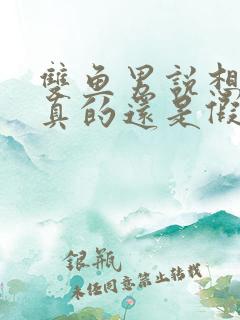 雙魚男說想
真的還是假
銀瓶
未經同意禁止转载